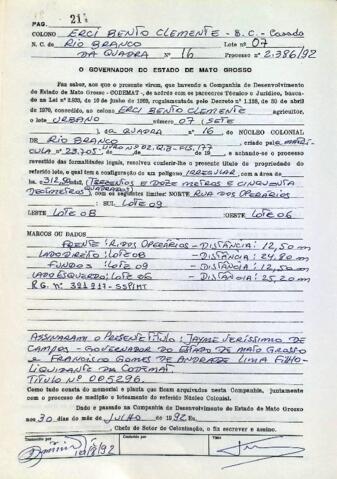 PAG. 21
COLONO ERCI BENTO CLEMENTE - B.C. - Casado
N. C. de RIO BRANCO Lote nº 07
DA QUADRA Nº 16 Processo nº 2.386/92
O GOVERNADOR DO ESTADO DE MATO GROSSO
Faz saber, aos que o presente virem, que havendo a Companhia de Desenvolvimento
do Estado de Mato Grosso - CODEMAT -, de acordo com os pareceres Técnico e Jurídico, baseada
na Lei nº 2.933, de 10 de junho de 1969, regulamentada pelo Decreto nº 1.138, de 30 de abril
de 1970, concedido, ao colono ERCI BENTO CLEMENTE agricultor,
o lote URBANO número 07 (SETE
), da QUADRA nº 16 do NÚCLEO COLONIAL
DE RIO BRANCO, criado pela MATRÍ
CULA Nº 23.705 LIVRO Nº 02.QB-FLS.177
de de 19 , e achando-se o processo
revestido das formalidades legais, resolveu conferir-lhe o presente título de propriedade do
referido lote, o qual tem a configuração de um polígono IRREGULAR, com a área de
ha. 312,50 (TREZENTOS E DOZE METROS E CINQUENTA
DECÍMETROS QUADRADOS), com os seguintes limites: NORTE RUA DOS OPERÁRIOS
SUL LOTE 09
LESTE LOTE 08 OESTE LOTE 06
MARCOS OU DADOS
FRENTE: R. DOS OPERÁRIOS - DISTÂNCIA: 12,50 m
LADO DIREITO: LOTE 08 - DISTÂNCIA: 24,80 m
FUNDOS: LOTE 09 - DISTÂNCIA: 12,50 m
LADO ESQUERDO: LOTE 06 - DISTÂNCIA: 25,20 m
ASSINARAM O PRESENTE TÍTULO: JAYME VERÍSSIMO DE
CAMPOS - GOVERNADOR DO ESTADO DE MATO GROSSO
E FRANCISCO GOMES DE ANDRADE LIMA FILHO -
LIQUIDANTE DA CODEMAT
TÍTULO Nº 005296.
Como tudo consta do memorial e planta que ficam arquivados nesta Companhia, juntamente
com o processo de medição e loteamento do referido Núcleo Colonial.
Dado e passado na Companhia de Desenvolvimento do Estado de Mato Grosso
aos 30 dias do mês de JULHO de 1992 Eu
, Chefe do Setor de Colonização, o fiz escrever e assino.